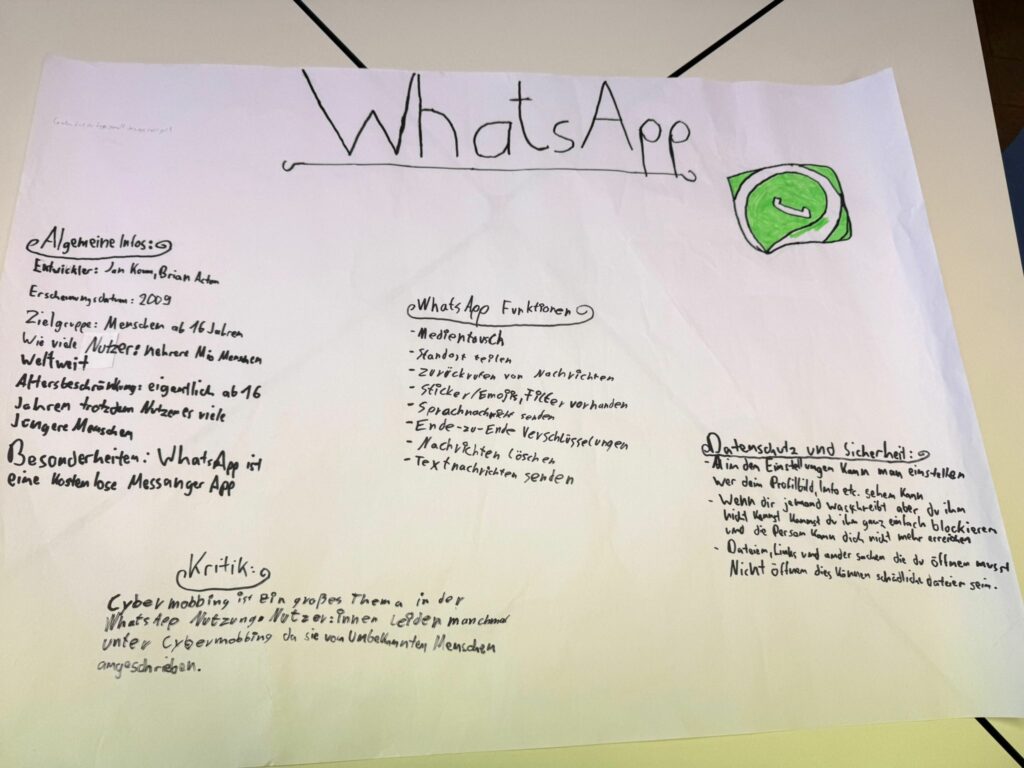 WhatsApp
Algemeine Infos:
Entwickler: Jan Koum, Brian Acton
Erscheinungsdatum: 2009
Zielgruppe: Menschen ab 16 Jahren
Wie viele Nutzer: mehrere Mio Menschen
Weltweit
Altersbeschränkung: eigentlich ab 16
Jahren trotzdem Nutzen es viele
Jüngere Menschen
Besonderheiten: WhatsApp ist
eine kostenlose Messanger App
WhatsApp Funktionen
- Medientausch
- Standort teilen
- Zurückrufen von Nachrichten
- Sticker/Emojis, Filter vorhanden
- Sprachnachricht senden
- Ende-zu-Ende Verschlüsselungen
- Nachrichten Löschen
- Textnachrichten senden
Datenschutz und Sicherheit:
- in den Einstellungen kann man einstellen
wer dein Profilbild, Info etc. sehen kann
- Wenn dir jemand aber du ihm
nicht kennst kannst du ihn ganz einfach blockieren
und die Person kann dich nicht mehr erreichen
- Dateien, Links und ander sachen die du öffnen musst
Nicht öffnen dies können schädliche dateien sein.
Kritik:
Cybermobbing ist ein großes Thema in der
WhatsApp Nutzung. Nutzer:innen Leiden manchmal
unter Cybermobbing da sie von Unbekannten Menschen
angeschrieben.